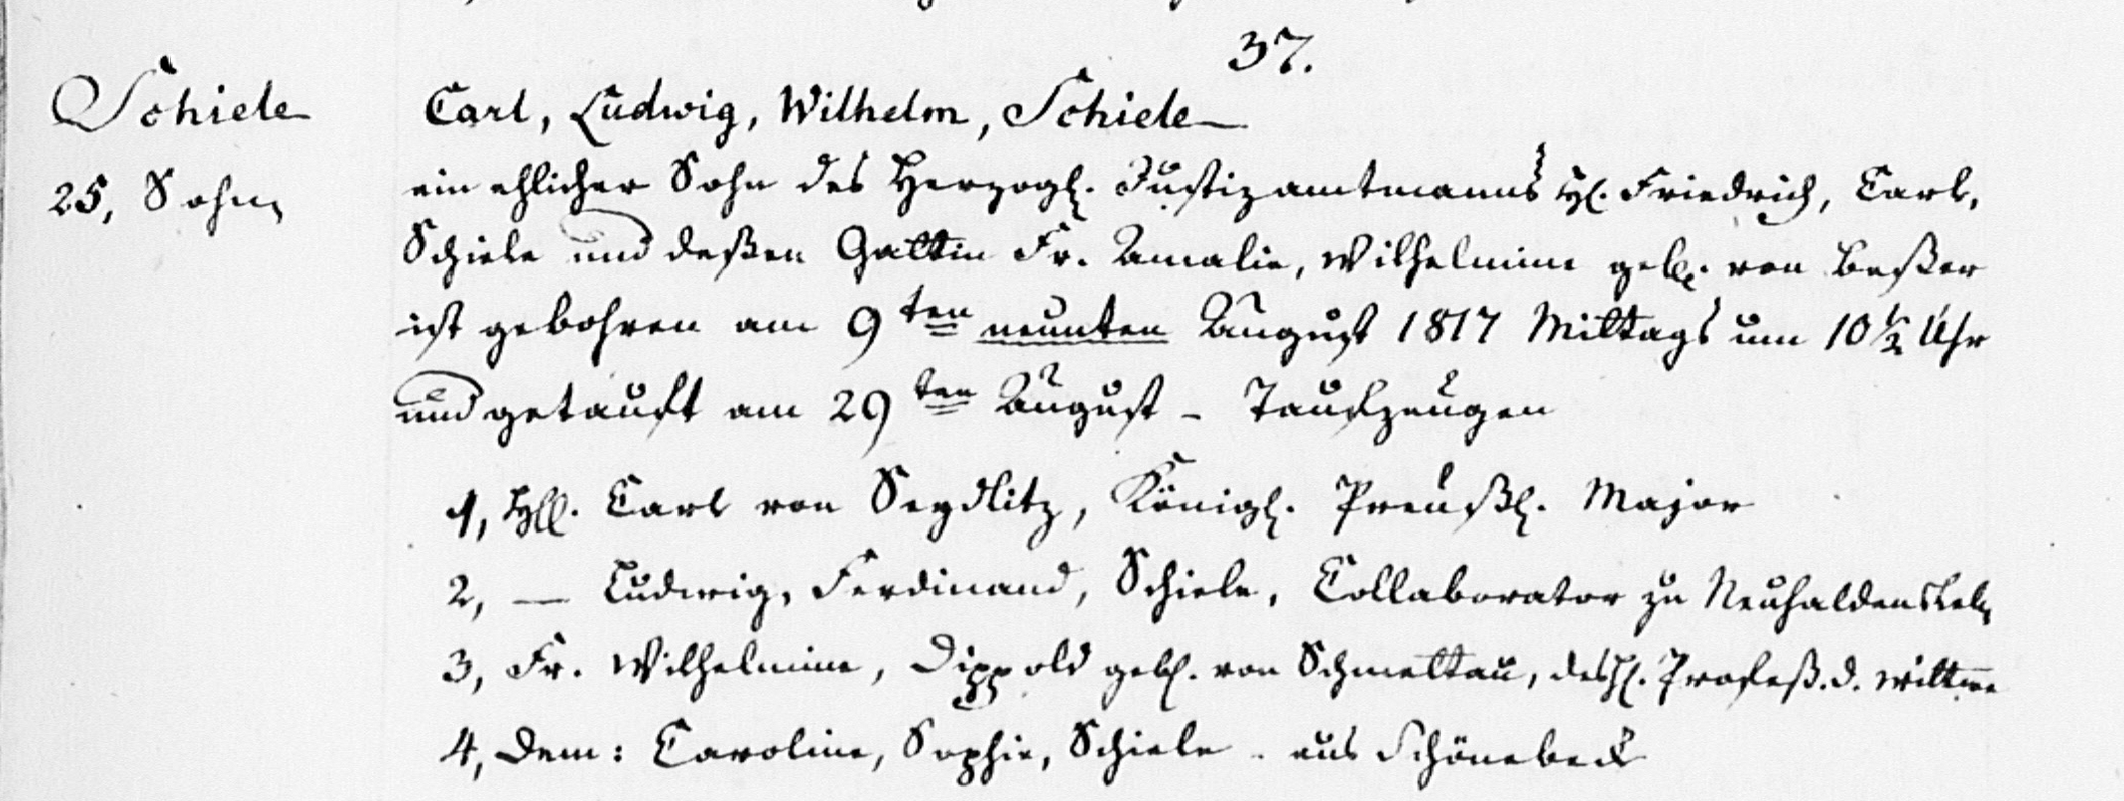 37.
Schiele
Carl, Ludwig, Wilhelm, Schiele
25, Sohn
ein ehlicher Sohn des Herzogl. Justizamtmanns H. Friedrich, Carl,
Schiele und deßen Gattin Fr. Amalie, Wilhelmine geb. von Beßer
ist gebohren am 9ten neunten August 1817 Mittags um 10 1/2 Uhr
und getauft am 29ten August - Taufzeugen
1, Carl von Seydlitz, Königl. Preußl. Major
2, — Ludwig, Ferdinand, Schiele, Collaborator zu Neuhaldensleb
3, Fr. Wilhelmine, Dippold geb. von Schmettau, des H. Profeß. d. Wittwe
4, Dem: Caroline, Sophie, Schiele - aus Schönebeck